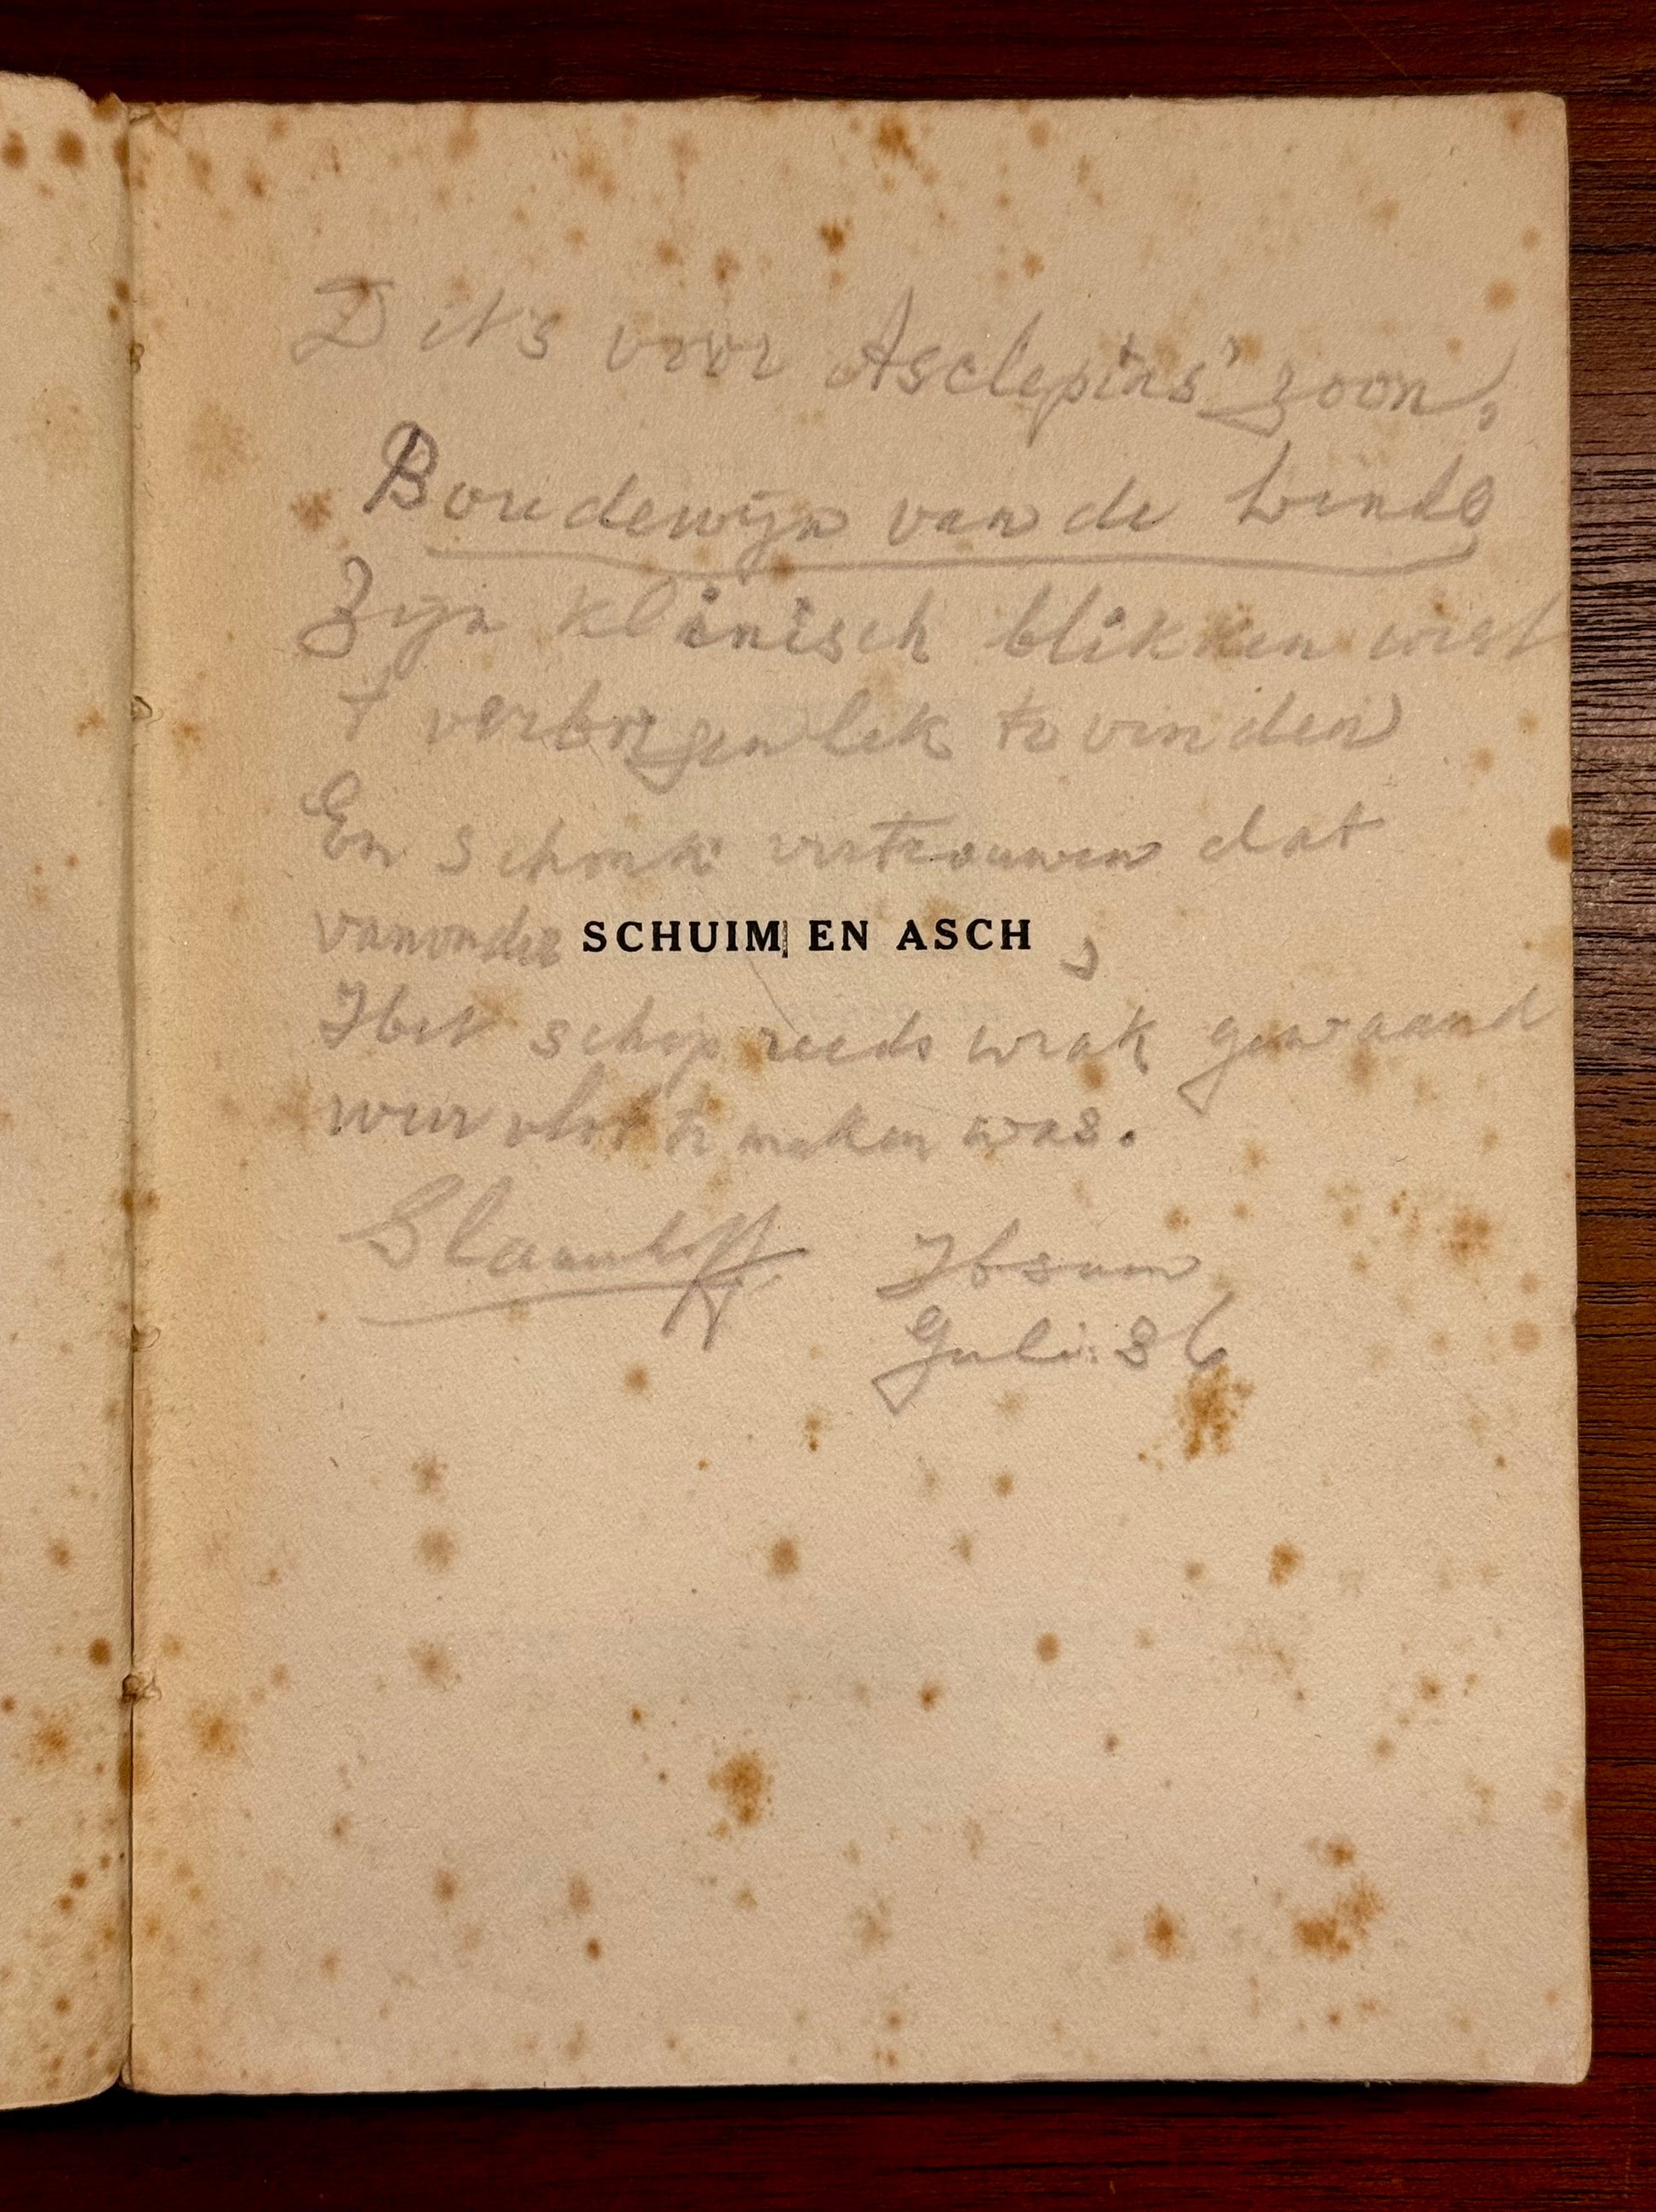 Dit's voor Asclepias' zoon,
Boudewijn van de Linde
Zijn klinisch blikken wist
't verborgen lek te vinden
En schonk vertrouwen dat
vanonder SCHUIM EN ASCH,
Het schip reeds wrak gewaand
weer vlot te maken was.
Slauerhoff
Juli 36